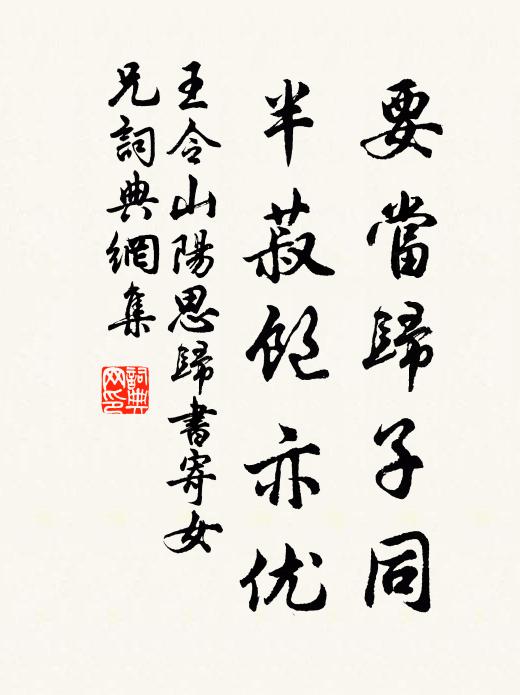 要當歸子同
半菽飽亦优
王令山陽思歸書寄女
兄詞典網集
詞典
网印